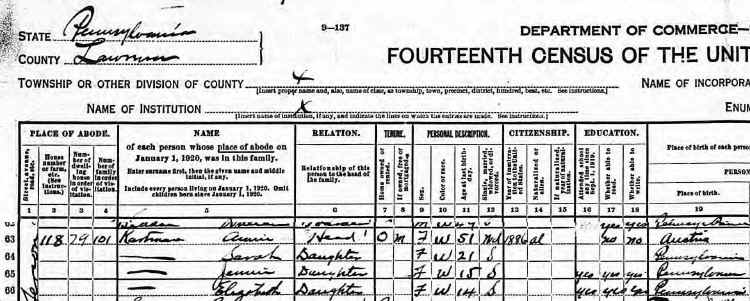 9-137
DEPARTMENT OF COMMERCE—
STATE Pennsylvania
COUNTY Lawrence
FOURTEENTH CENSUS OF THE UNIT
TOWNSHIP OR OTHER DIVISION OF COUNTY X
NAME OF INCORPORA
[Insert proper name and, also, name of class, as township, town, precinct, district, hundred, beat, etc. See instructions.]
NAME OF INSTITUTION X
ENU
[Insert name of institution, if any, and indicate the lines on which the entries are made. See instructions.]
PLACE OF ABODE. NAME RELATION. TENURE. PERSONAL DESCRIPTION. CITIZENSHIP. EDUCATION.
of each person whose place of abode on January 1, 1920, was in this family.
Enter surname first, then the given name and middle initial, if any.
Include every person living on January 1, 1920. Omit children born since January 1, 1920.
Relationship of this person to the head of the family.
Street, avenue, road, etc.
House number or farm, etc. (See instructions.)
Number of dwelling house in order of visitation.
Number of family in order of visitation.
Home owned or rented.
If owned, free or mortgaged.
Sex.
Color or race.
Age at last birthday.
Single, married, widowed, or divorced.
Year of immigration to the United States.
Naturalized or alien.
If naturalized, year of naturalization.
Attended school any time since Sept. 1, 1919.
Whether able to read.
Whether able to write.
Place of birth of each person
PERSON
Place of birth.
1 2 3 4 5 6 7 8 9 10 11 12 13 14 15 16 17 18 19
M W yes yes
63 118 79 101 Annie Head 1 O M F W 51 Md 1886 al no no Austria
64 — Sarah Daughter F W 21 S Pennsylvania
65 — Jennie Daughter F W 15 S yes yes yes Pennsylvania
66 — Elizabeth Daughter F W 14 S yes yes yes Pennsylvania